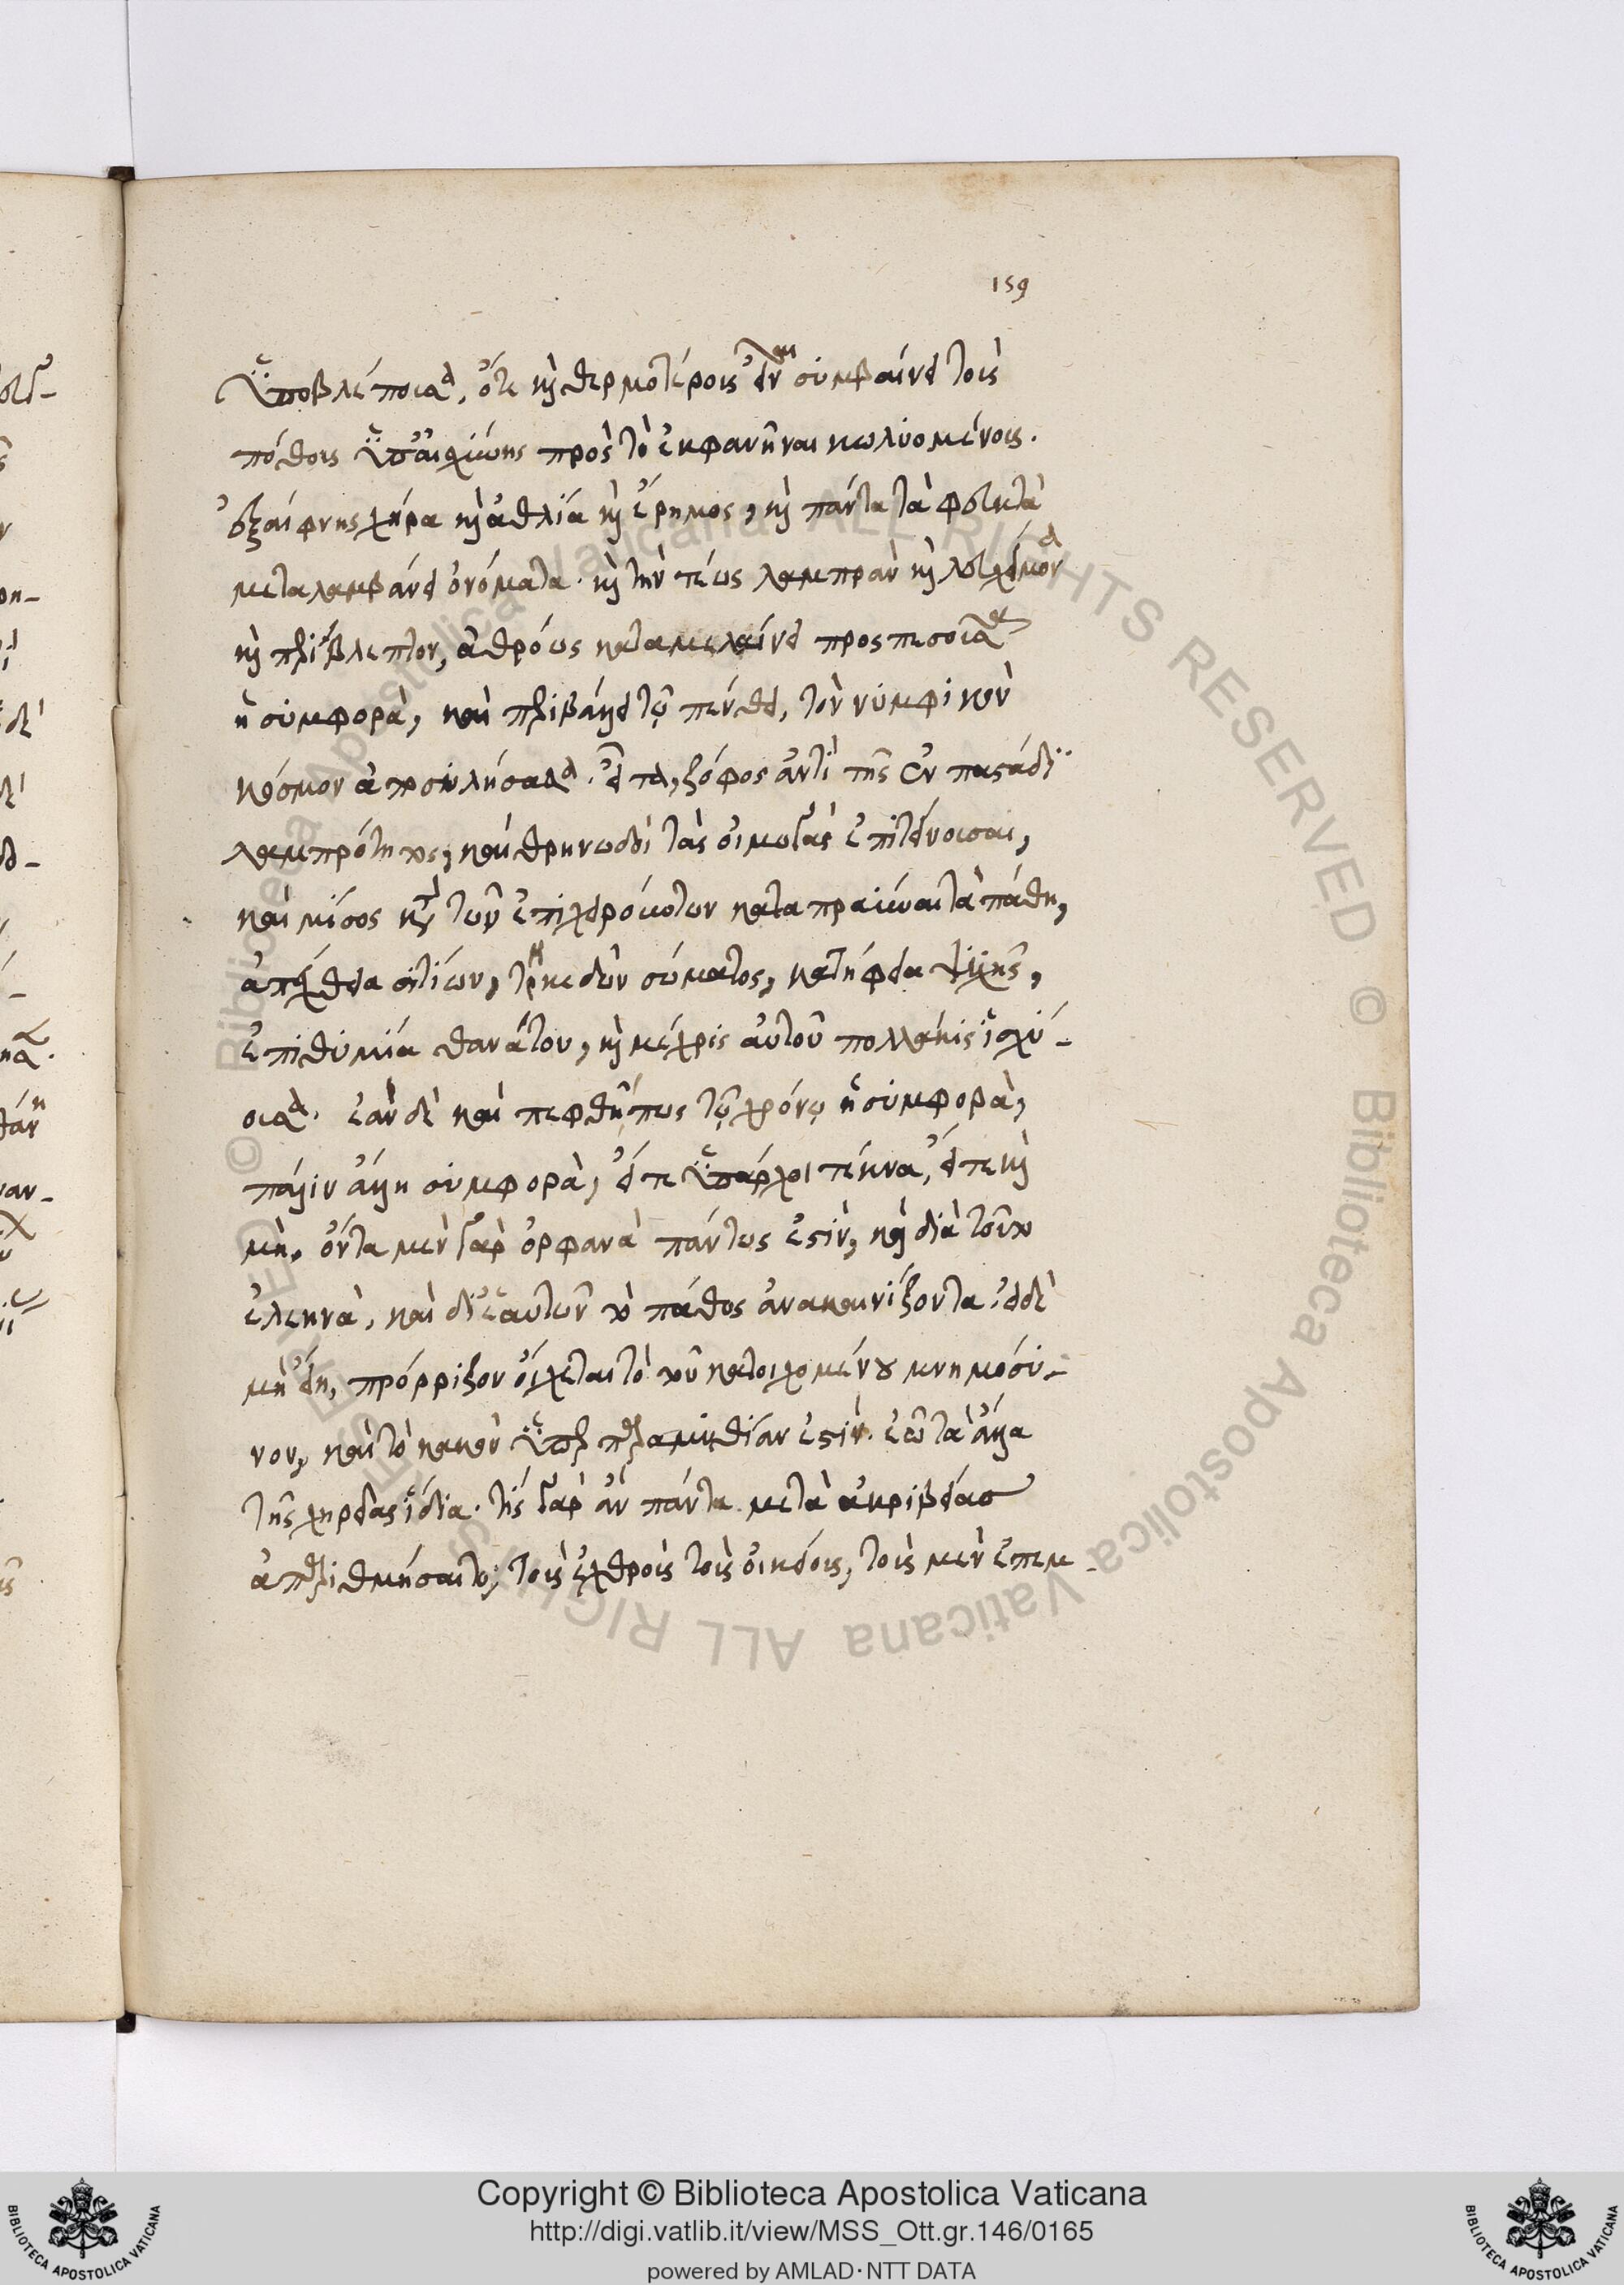 159
ὑποβλέποιεν, ὅτε καὶ θερμοτέροις εἶναι συμβαίνει τοῖς
πόθοις ὑπ' αἰσχύνης πρὸς τὸ ἐκφανῆναι κωλυομένοις.
ἐξαίφνης χήρα καὶ ἀθλία καὶ ἔρημος, καὶ πάντα τὰ φευκτὰ
μεταλαμβάνει ὀνόματα. καὶ τὴν τέως λαμπρὰν καὶ
καὶ περίβλεπτον, ἀθρόως καταμελαίνει προσπεσοῦσα
ἡ συμφορὰ, καὶ περιβάλλει τῷ πένθει, τὸν νυμφικὸν
κόσμον ἀποσυλήσασα. εἶτα, ζόφος ἀντὶ τῆς ἐν παστάδι
λαμπρότητος, καὶ θρηνωδοὶ τὰς οἰμωγὰς ἐπιτείνουσαι,
καὶ μῖσος κατὰ τῶν ἐπιχειρούντων καταπραΰναι τὰ πάθη,
ἀπέχθεια σιτίων, τηκεδὼν σώματος, κατήφεια ψυχῆς,
ἐπιθυμία θανάτου, καὶ μέχρις αὐτοῦ πολλάκις ἰσχύ-
ουσα. ἐὰν δὲ καὶ πεφθῇ πως τῷ χρόνῳ ἡ συμφορὰ,
πάλιν ἄλλη συμφορὰ, εἴτε ὑπάρχοι τέκνα, εἴτε καὶ
μὴ. ὄντα μὲν γὰρ ὀρφανὰ πάντως ἐστὶν, καὶ διὰ τοῦτο
ἐλεεινὰ, καὶ δι' ἑαυτῶν τὸ πάθος ἀνακαινίζοντα. εἰ δὲ
μὴ εἴη, πρόρριζον οἴχεται τὸ τοῦ κατοιχομένου μνημόσυ-
νον, καὶ τὸ κακὸν ὑπὲρ παραμυθίαν ἐστίν. ἐῶ τὰ ἄλλα
τῆς χηρείας ἴδια. τίς γὰρ ἂν πάντα μετὰ ἀκριβείας
ἀπαριθμήσαιτο; τοὺς ἐχθροὺς τοὺς οἰκείους, τοὺς μὲν ἐπεμ-
Copyright © Biblioteca Apostolica Vaticana
http://digi.vatlib.it/view/MSS_Ott.gr.146/0165
powered by AMLAD·NTT DATA